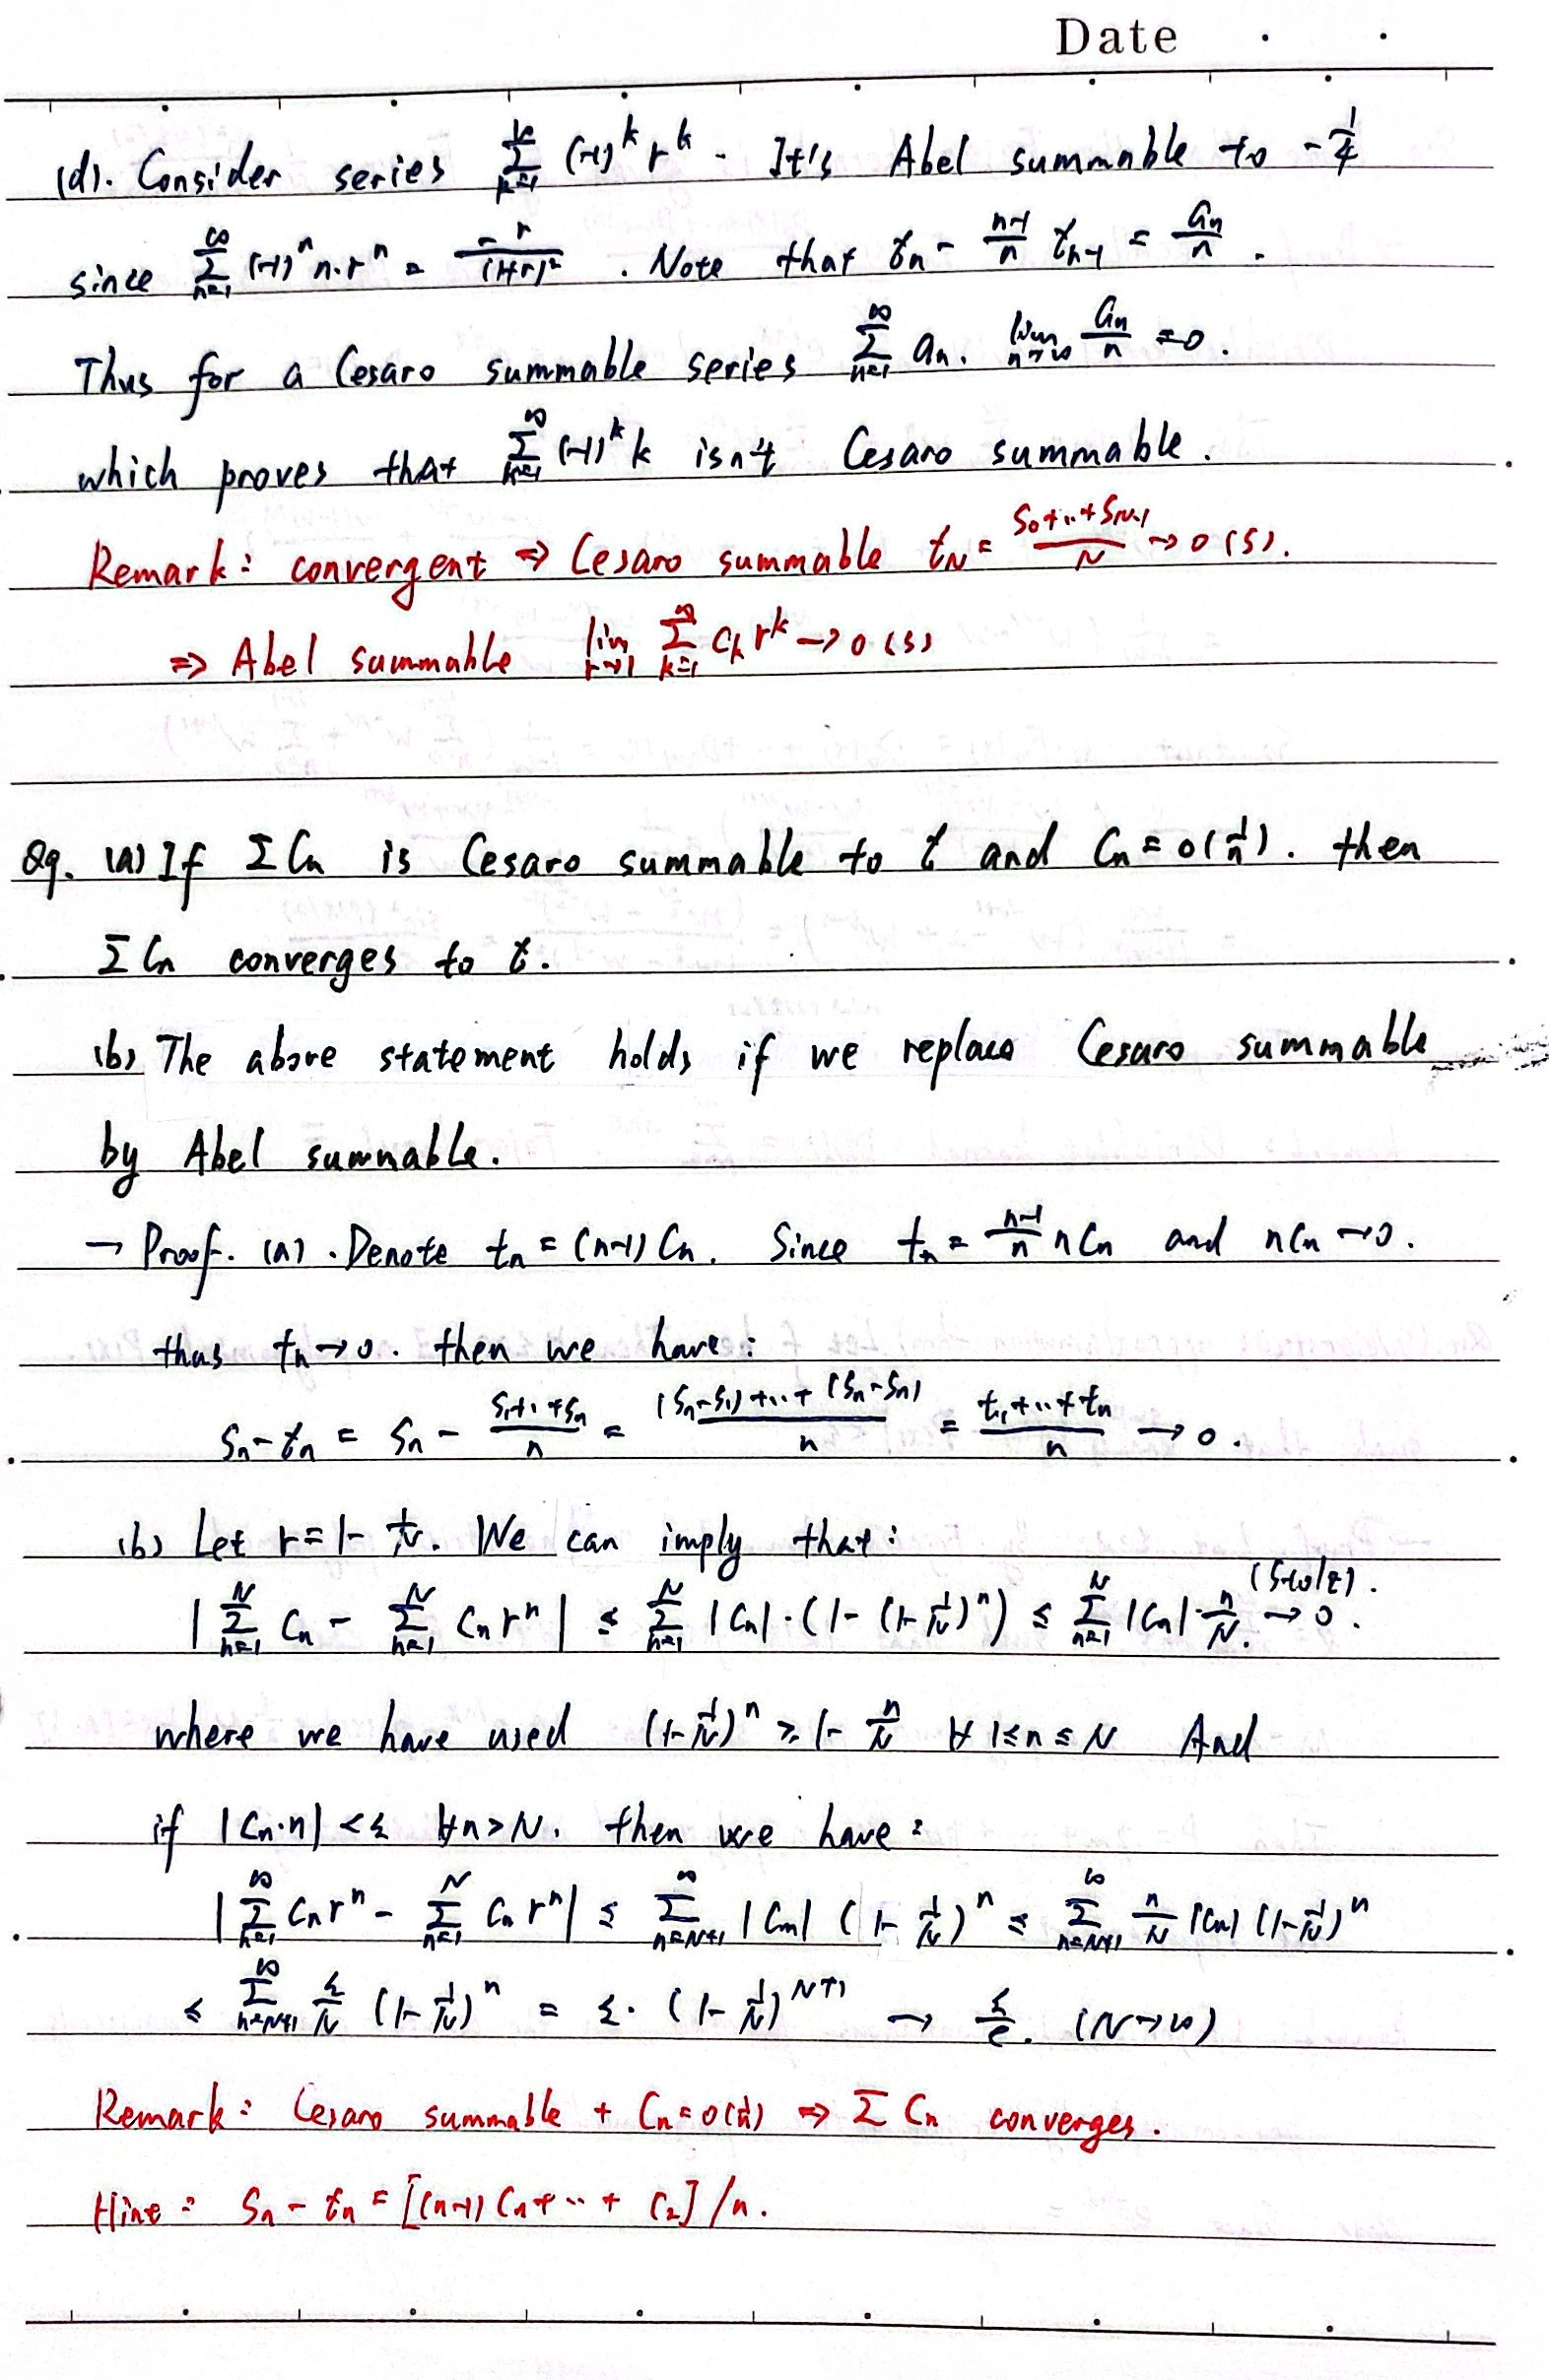 Date
(d). Consider series $\sum_{k=1}^{\infty} (-1)^k r^k$. It's Abel summable to $-\frac{1}{4}$
since $\sum_{n=1}^{\infty} (-1)^n n \cdot r^n = \frac{-r}{(1+r)^2}$. Note that $\sigma_n - \frac{n-1}{n} \sigma_{n-1} = \frac{a_n}{n}$.
Thus for a Cesaro summable series $\sum_{n=1}^{\infty} a_n$. $\lim_{n \to \infty} \frac{a_n}{n} = 0$.
which proves that $\sum_{k=1}^{\infty} (-1)^k k$ isn't Cesaro summable.
Remark: convergent ⇒ Cesaro summable $t_N = \frac{S_0 + \cdots + S_{N-1}}{N} \to 0 (S)$.
⇒ Abel summable $\lim_{r \to 1} \sum_{k=1}^{\infty} c_k r^k \to 0 (S)$
Q9. (a) If $\Sigma C_n$ is Cesaro summable to $\sigma$ and $C_n = o(\frac{1}{n})$. then
$\Sigma C_n$ converges to $\sigma$.
(b) The above statement holds if we replace Cesaro summable
by Abel summable.
→ Proof. (a). Denote $t_n = (n-1) C_n$. Since $t_n = \frac{n-1}{n} n C_n$ and $n C_n \to 0$.
thus $t_n \to 0$. then we have:
$S_n - \sigma_n = S_n - \frac{S_1 + \cdots + S_n}{n} = \frac{(S_n - S_1) + \cdots + (S_n - S_n)}{n} = \frac{t_1 + \cdots + t_n}{n} \to 0$.
(b) Let $r = 1 - \frac{1}{N}$. We can imply that:
$|\sum_{n=1}^{N} C_n - \sum_{n=1}^{N} C_n r^n| \le \sum_{n=1}^{N} |C_n| \cdot (1 - (1 - \frac{1}{N})^n) \le \sum_{n=1}^{N} |C_n| \cdot \frac{n}{N} \to 0$. (Stolz).
where we have used $(1 - \frac{1}{N})^n \ge 1 - \frac{n}{N}$ $\forall 1 \le n \le N$ And
if $|C_n \cdot n| < \varepsilon$ $\forall n > N$. then we have:
$|\sum_{n=1}^{\infty} C_n r^n - \sum_{n=1}^{N} C_n r^n| \le \sum_{n=N+1}^{\infty} |C_n| (1 - \frac{1}{N})^n \le \sum_{n=N+1}^{\infty} \frac{n}{N} |C_n| (1 - \frac{1}{N})^n$
$\le \sum_{n=N+1}^{\infty} \frac{\varepsilon}{N} (1 - \frac{1}{N})^n = \varepsilon \cdot (1 - \frac{1}{N})^{N+1} \to \frac{\varepsilon}{e}$. $(N \to \infty)$
Remark: Cesaro summable + $C_n = o(\frac{1}{n})$ ⇒ $\Sigma C_n$ converges.
Hint: $S_n - \sigma_n = [(n-1) C_n + \cdots + C_2] / n$.